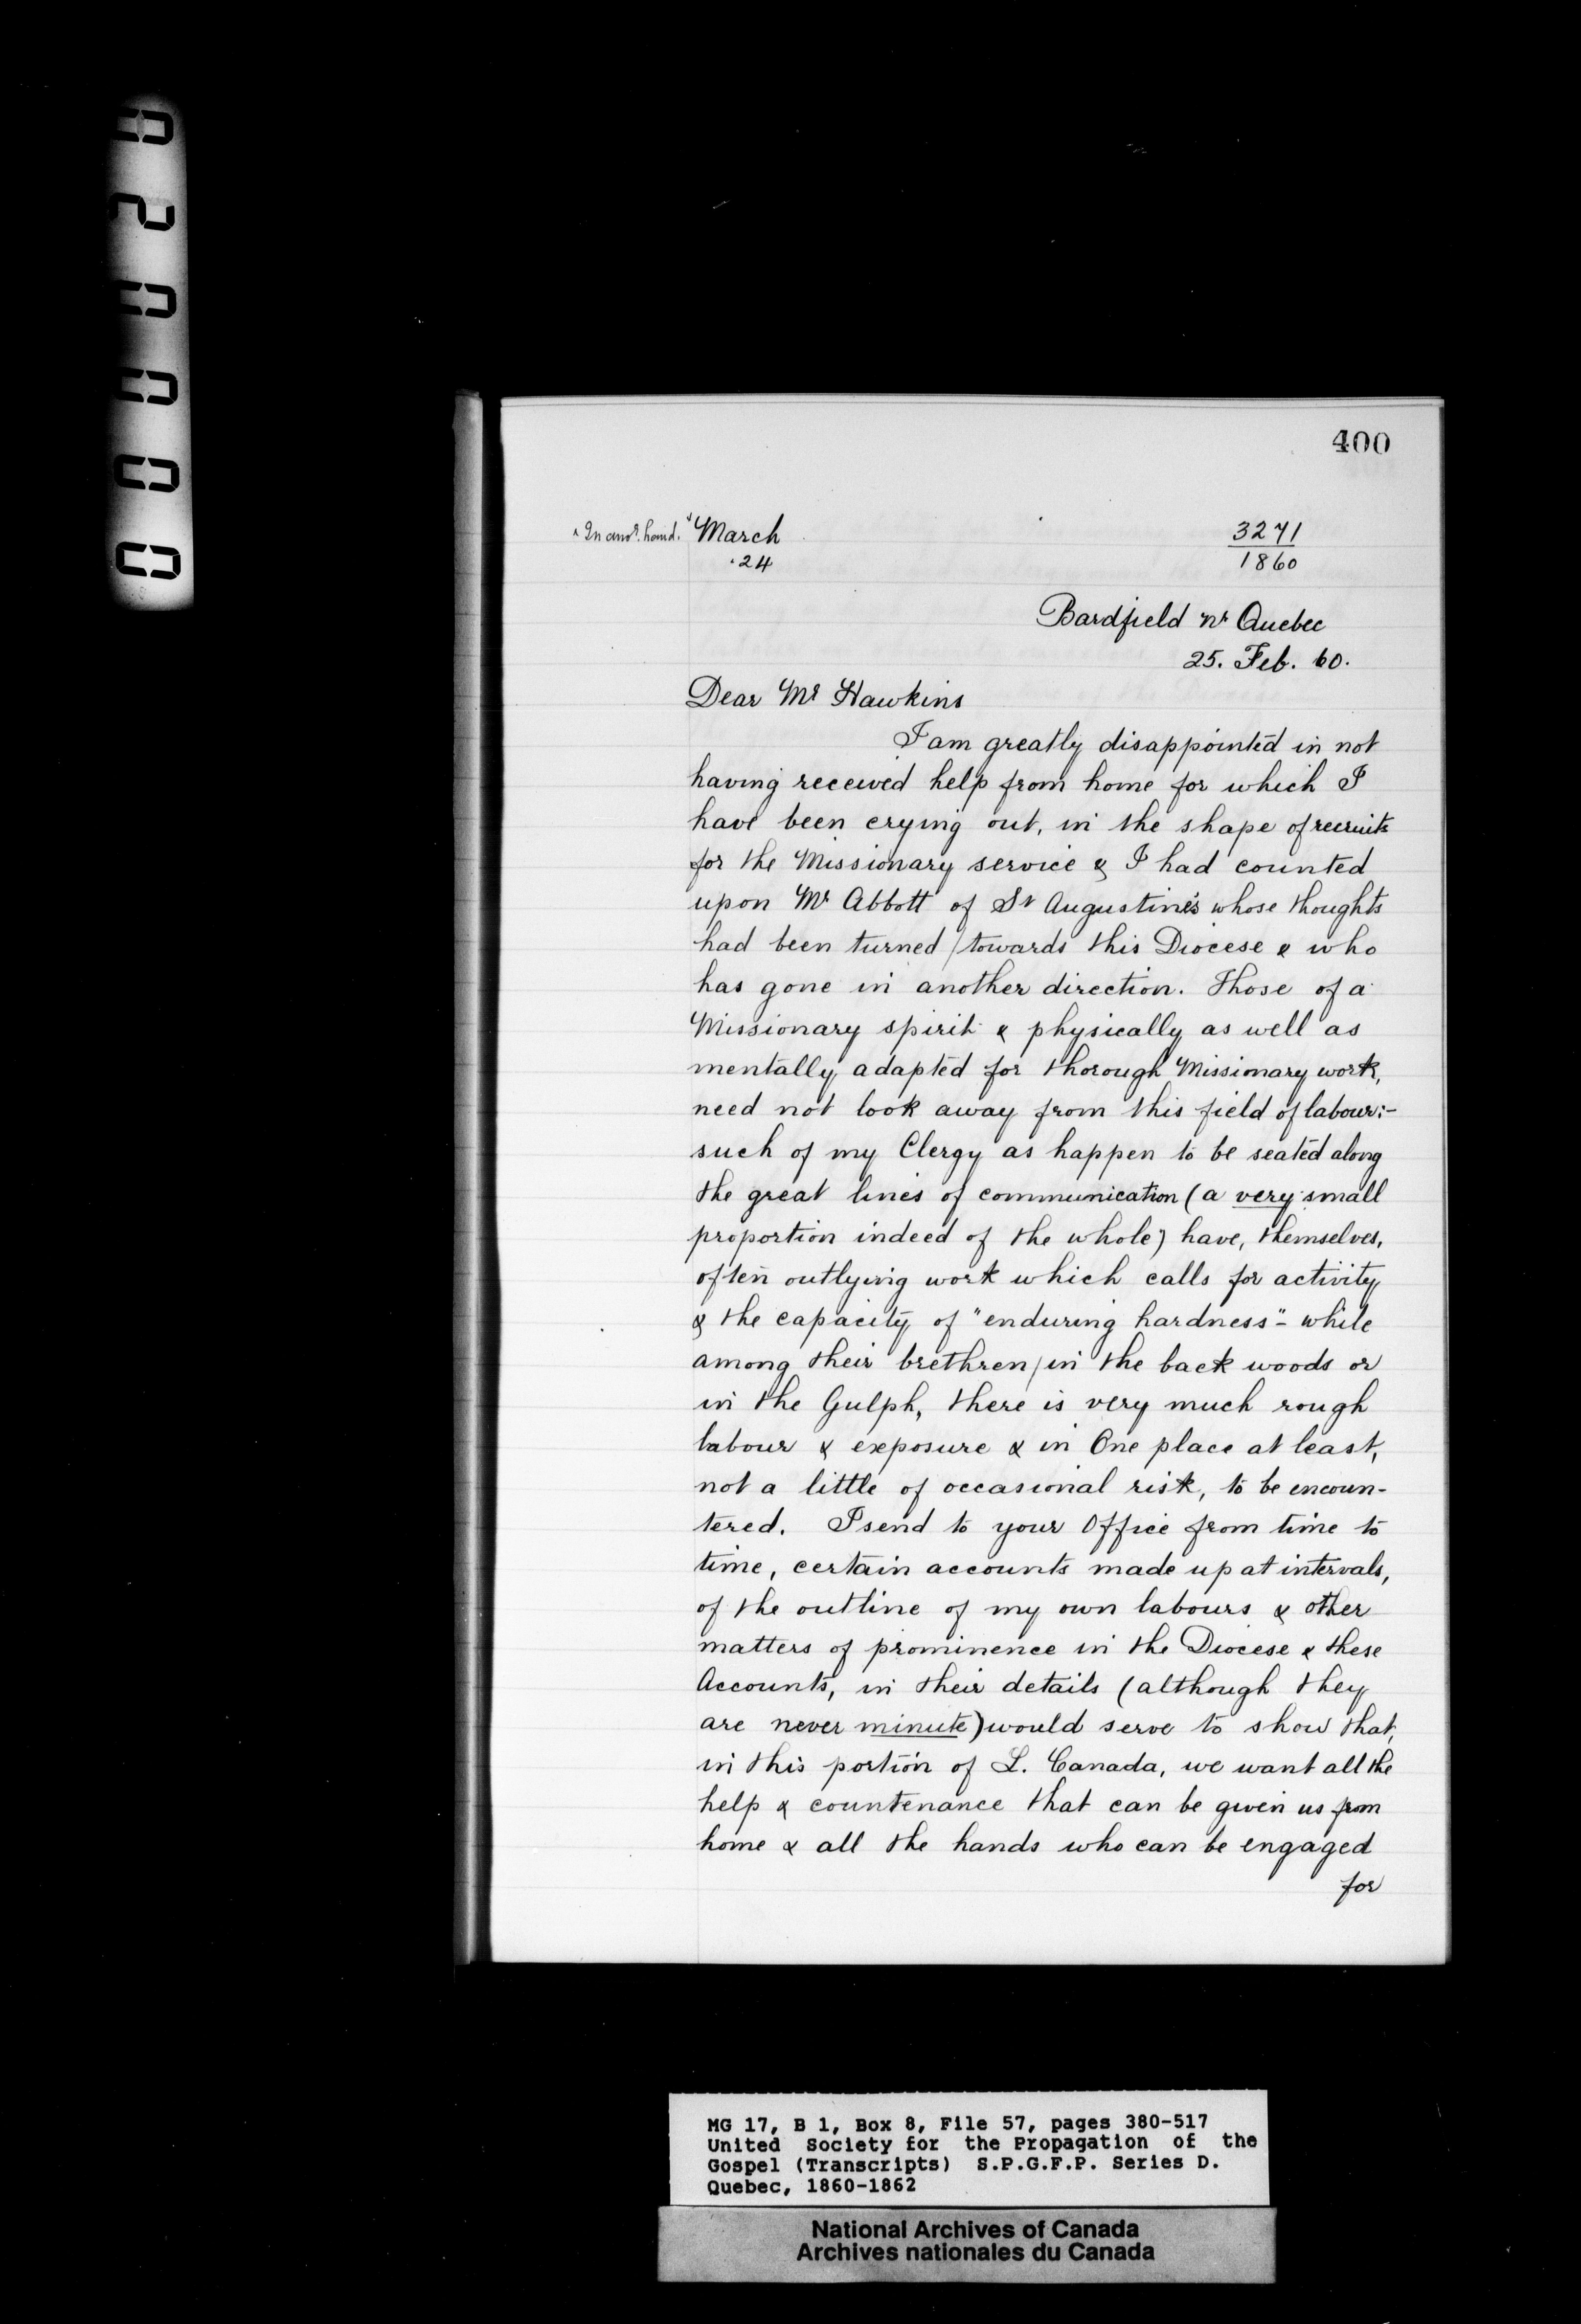 020000
400
x In anor. hand. x March
24
3271
1860
Bardfield nr Quebec
25. Feb. 60.
Dear Mr Hawkins
I am greatly disappointed in not
having received help from home for which I
have been crying out, in the shape of recruits
for the Missionary service & I had counted
upon Mr Abbott of St Augustine's whose thoughts
had been turned towards this Diocese & who
has gone in another direction. Those of a
Missionary spirit & physically as well as
mentally adapted for thorough Missionary work,
need not look away from this field of labour:-
such of my Clergy as happen to be seated along
the great lines of communication (a very small
proportion indeed of the whole) have, themselves,
often outlying work which calls for activity
& the capacity of "enduring hardness" - while
among their brethren in the back woods or
in the Gulph, there is very much rough
labour & exposure & in One place at least,
not a little of occasional risk, to be encoun-
tered. I send to your Office from time to
time, certain accounts made up at intervals,
of the outline of my own labours & other
matters of prominence in the Diocese & these
Accounts, in their details (although they
are never minute) would serve to show that,
in this portion of L. Canada, we want all the
help & countenance that can be given us from
home & all the hands who can be engaged
for
MG 17, B 1, Box 8, File 57, pages 380-517
United Society for the Propagation of the
Gospel (Transcripts) S.P.G.F.P. Series D.
Quebec, 1860-1862
National Archives of Canada
Archives nationales du Canada